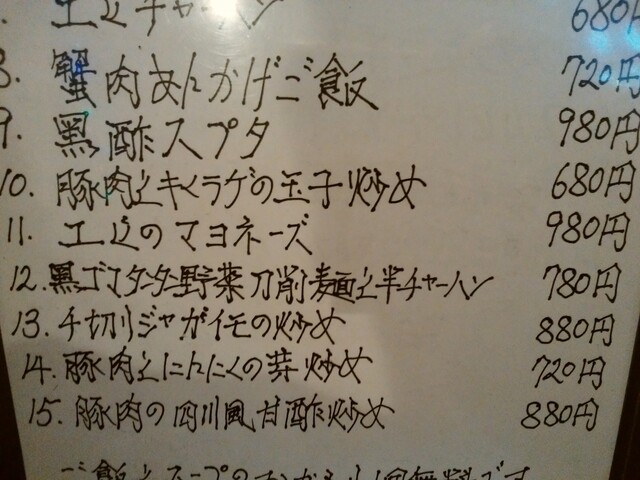 エビチャーハン 680円
8. 蟹肉あんかけご飯 720円
9. 黒酢スプタ 980円
10. 豚肉とキクラゲの玉子炒め 680円
11. エビのマヨネーズ 980円
12. 黒ゴマタンター野菜刀削麺と半チャーハン 780円
13. 千切りジャガイモの炒め 880円
14. 豚肉とにんにくの芽炒め 720円
15. 豚肉の四川風甘酢炒め 880円
ご飯とスープのおかわり1回無料です